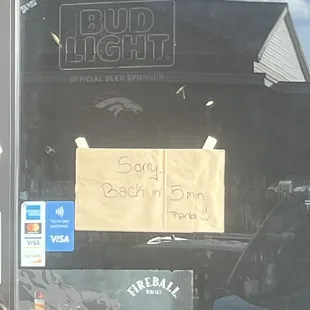 BUD
LIGHT
OFFICIAL BEER SPONSOR
Sorry.
Back in 5 min
Thanks
VISA
VISA
FIREBALL